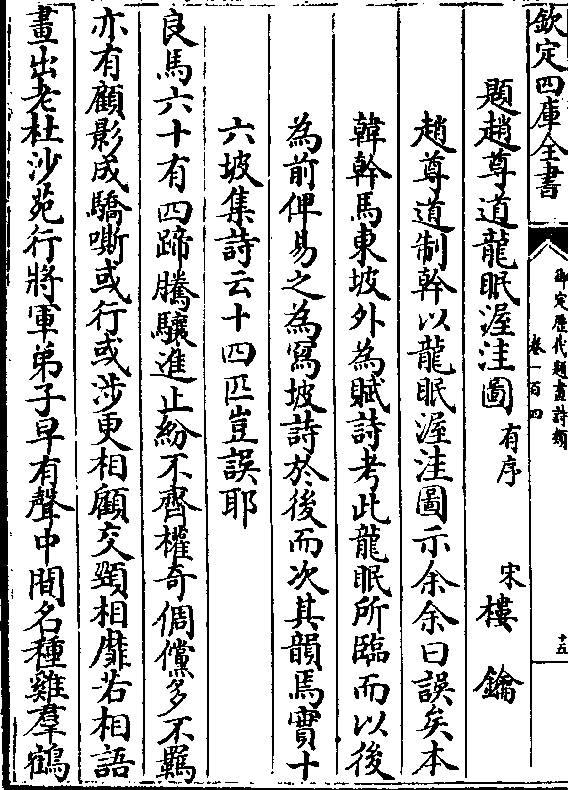 欽定四庫全書
御定歷代題畫詩類
卷一百四
十五
題趙尊道龍眠渥洼圖 有序 宋 樓鑰
趙尊道制幹以龍眠渥洼圖示余余曰誤矣本
韓幹馬東坡外為賦詩考此龍眠所臨而以後
為前俾易之為寫坡詩於後而次其韻馬實十
六坡集詩云十四匹豈誤耶
良馬六十有四蹄騰驤進止紛不齊權奇倜儻多不羈
亦有顧影成驕嘶或行或涉更相顧交頸相靡若相語
畫出老杜沙苑行將軍弟子早有聲中間名種雞羣鶴